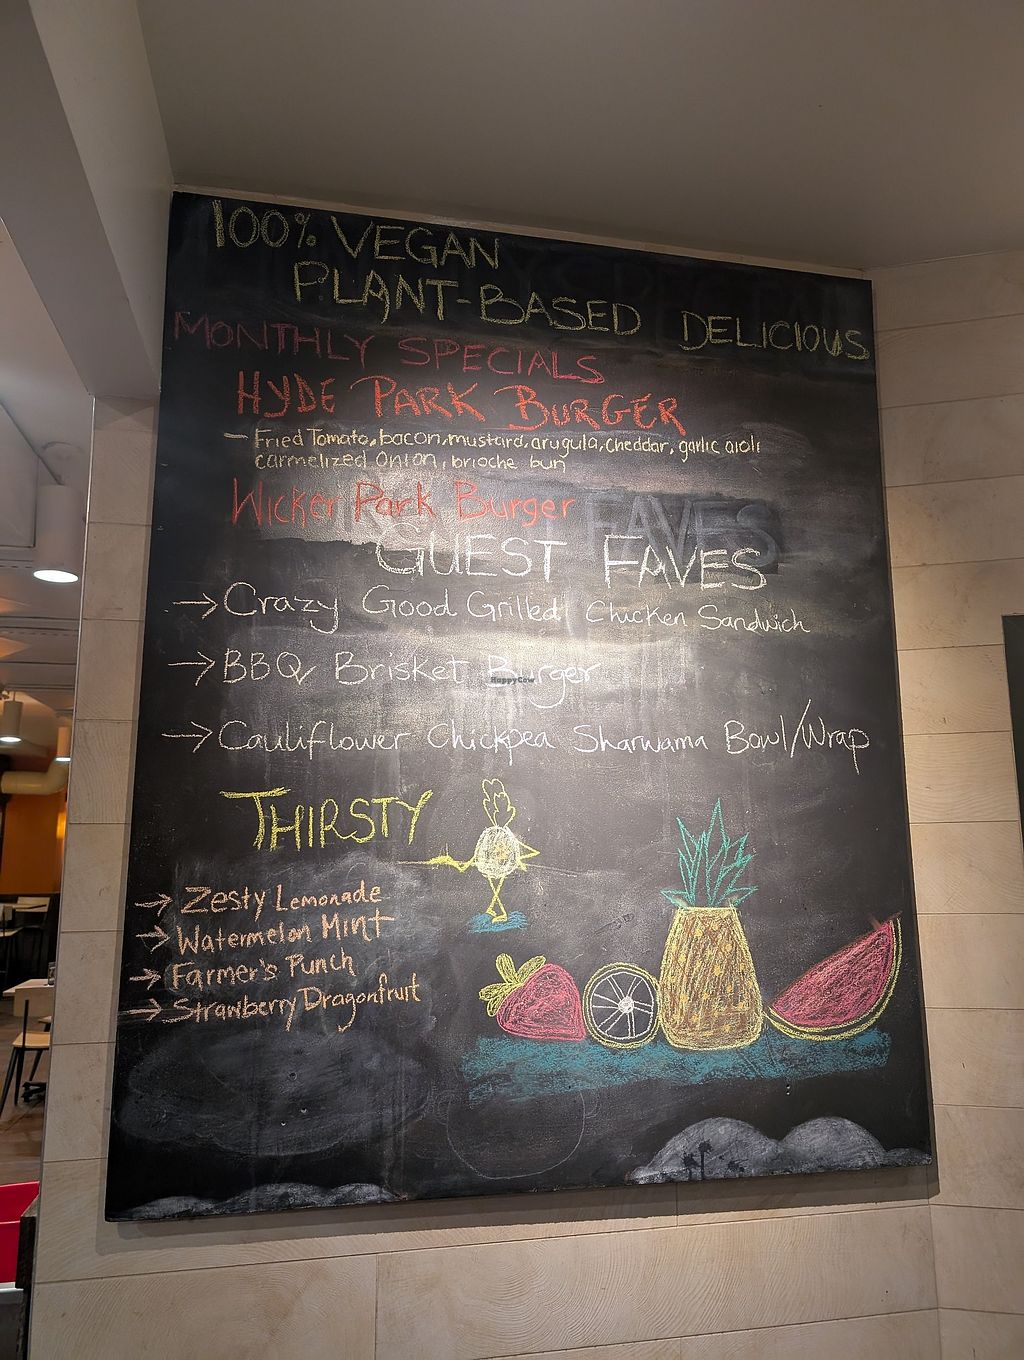 100% VEGAN
PLANT-BASED DELICIOUS
MONTHLY SPECIALS
HYDE PARK BURGER
- Fried Tomato, bacon, mustard, arugula, cheddar, garlic aioli
carmelized onion, brioche bun
Wicker Park Burger
FAVES
GUEST FAVES
→ Crazy Good Grilled Chicken Sandwich
→ BBQ Brisket Burger
HappyCow
→ Cauliflower Chickpea Sharwama Bowl/Wrap
THIRSTY
→ Zesty Lemonade
→ Watermelon Mint
→ Farmer's Punch
→ Strawberry Dragonfruit